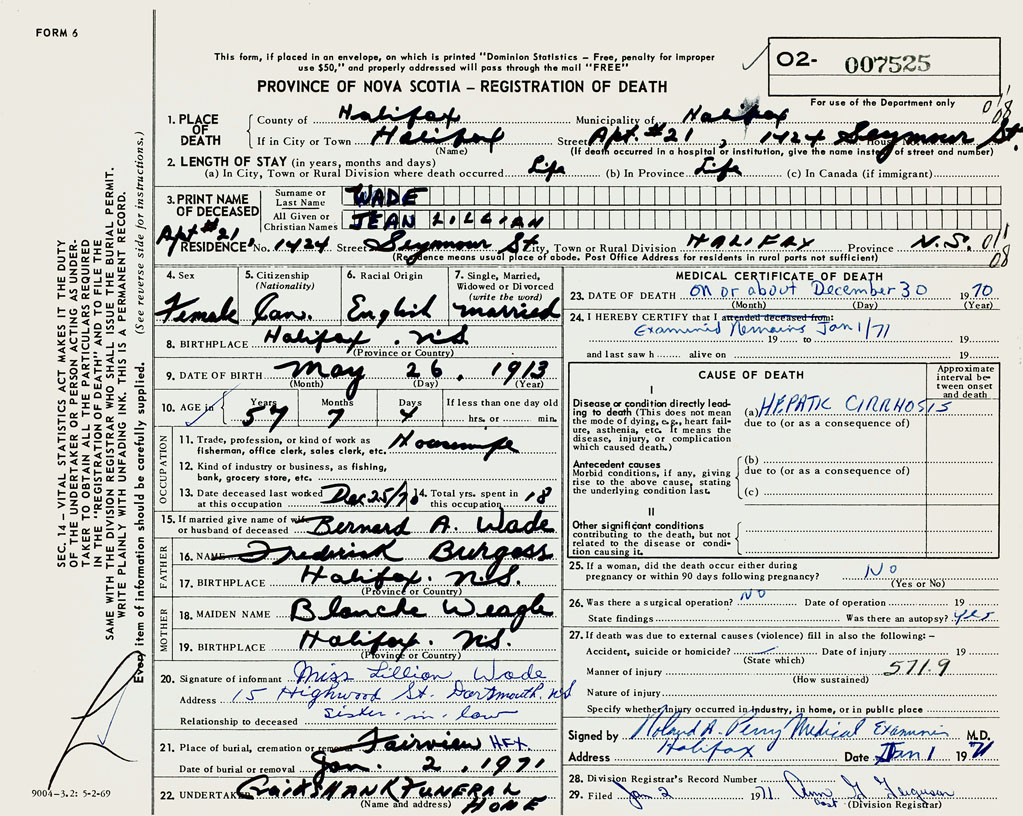 FORM 6
This form, if placed in an envelope, on which is printed "Dominion Statistics – Free, penalty for improper
use $50," and properly addressed will pass through the mail "FREE"
PROVINCE OF NOVA SCOTIA – REGISTRATION OF DEATH
O2- 007525
For use of the Department only
1. PLACE OF DEATH County of Halifax Municipality of Halifax 018
If in City or Town Halifax Street Apt. #21, 1424 Seymour St.
(Name) (If death occurred in a hospital or institution, give the name instead of street and number)
2. LENGTH OF STAY (in years, months and days)
(a) In City, Town or Rural Division where death occurred Life (b) In Province Life (c) In Canada (if immigrant)
3. PRINT NAME OF DECEASED Surname or Last Name WADE
All Given or Christian Names JEAN LILLIAN
Apt #21
RESIDENCE No. 1424 Street Seymour St., Town or Rural Division HALIFAX Province N.S. 018
(Residence means usual place of abode. Post Office Address for residents in rural parts not sufficient)
4. Sex Female
5. Citizenship (Nationality) Can.
6. Racial Origin English
7. Single, Married, Widowed or Divorced (write the word) Married
8. BIRTHPLACE Halifax. N.S.
(Province or Country)
9. DATE OF BIRTH May 26, 1913
(Month) (Day) (Year)
10. AGE in Years 57 Months 7 Days 4 If less than one day old
hrs. or min.
OCCUPATION
11. Trade, profession, or kind of work as fisherman, office clerk, sales clerk, etc. Housewife
12. Kind of industry or business, as fishing, bank, grocery store, etc.
13. Date deceased last worked at this occupation Dec 25/70 14. Total yrs. spent in this occupation 18
15. If married give name of wife or husband of deceased Bernard A. Wade
FATHER
16. NAME Frederick Burgess
17. BIRTHPLACE Halifax. N.S.
(Province or Country)
MOTHER
18. MAIDEN NAME Blanche Weagle
19. BIRTHPLACE Halifax. N.S.
(Province or Country)
20. Signature of informant Miss Lillian Wade
Address 15 Highwood St. Dartmouth, NS
Relationship to deceased sister-in-law
21. Place of burial, cremation or removal Fairview HFX
Date of burial or removal Jan. 2, 1971
22. UNDERTAKER Cruikshank Funeral Home
(Name and address)
MEDICAL CERTIFICATE OF DEATH
23. DATE OF DEATH on or about December 30 1970
(Month) (Day) (Year)
24. I HEREBY CERTIFY that I attended deceased from:
Examined Remains Jan 1/71
19 to 19
and last saw h alive on 19
CAUSE OF DEATH
Approximate interval between onset and death
I
Disease or condition directly leading to death (This does not mean the mode of dying, e.g., heart failure, asthenia, etc. It means the disease, injury, or complication which caused death.)
(a) HEPATIC CIRRHOSIS
due to (or as a consequence of)
Antecedent causes
Morbid conditions, if any, giving rise to the above cause, stating the underlying condition last.
(b)
due to (or as a consequence of)
(c)
II
Other significant conditions
contributing to the death, but not related to the disease or condition causing it.
25. If a woman, did the death occur either during
pregnancy or within 90 days following pregnancy? NO
(Yes or No)
26. Was there a surgical operation? NO Date of operation 19
State findings Was there an autopsy? yes
27. If death was due to external causes (violence) fill in also the following: –
Accident, suicide or homicide? Date of injury 19
(State which)
Manner of injury 571.9
(How sustained)
Nature of injury
Specify whether injury occurred in industry, in home, or in public place
Signed by Roland A. Perry Medical Examiner M.D.
Address Halifax Date Jan 1 1971
28. Division Registrar's Record Number
29. Filed Jan 2 1971 Ann G Ferguson
(Division Registrar)
SEC. 14 – VITAL STATISTICS ACT MAKES IT THE DUTY
OF THE UNDERTAKER OR PERSON ACTING AS UNDER-
TAKER TO OBTAIN ALL THE PARTICULARS REQUIRED
IN THE "REGISTRATION OF DEATH" AND TO FILE THE
SAME WITH THE DIVISION REGISTRAR WHO SHALL ISSUE THE BURIAL PERMIT.
WRITE PLAINLY WITH UNFADING INK. THIS IS A PERMANENT RECORD.
Every item of information should be carefully supplied. (See reverse side for instructions.)
9004-3.2: 5-2-69